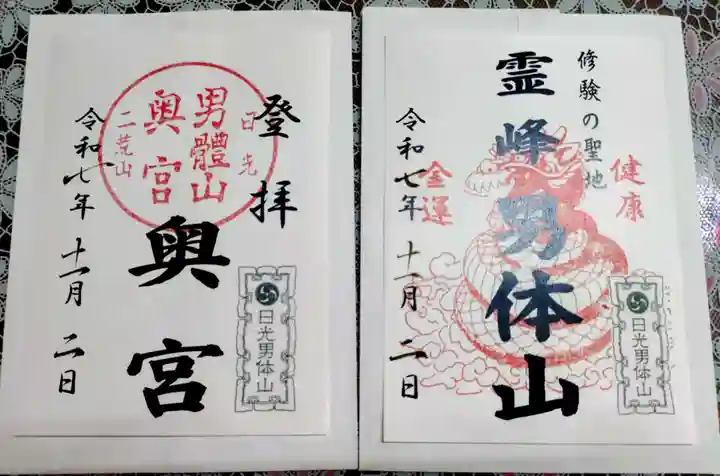 登拝
奥宮
日光
男體山
奥宮
二荒山
令和七年十一月二日
日光男体山
修験の聖地
霊峰男体山
健康
金運
令和七年十一月二日
日光男体山